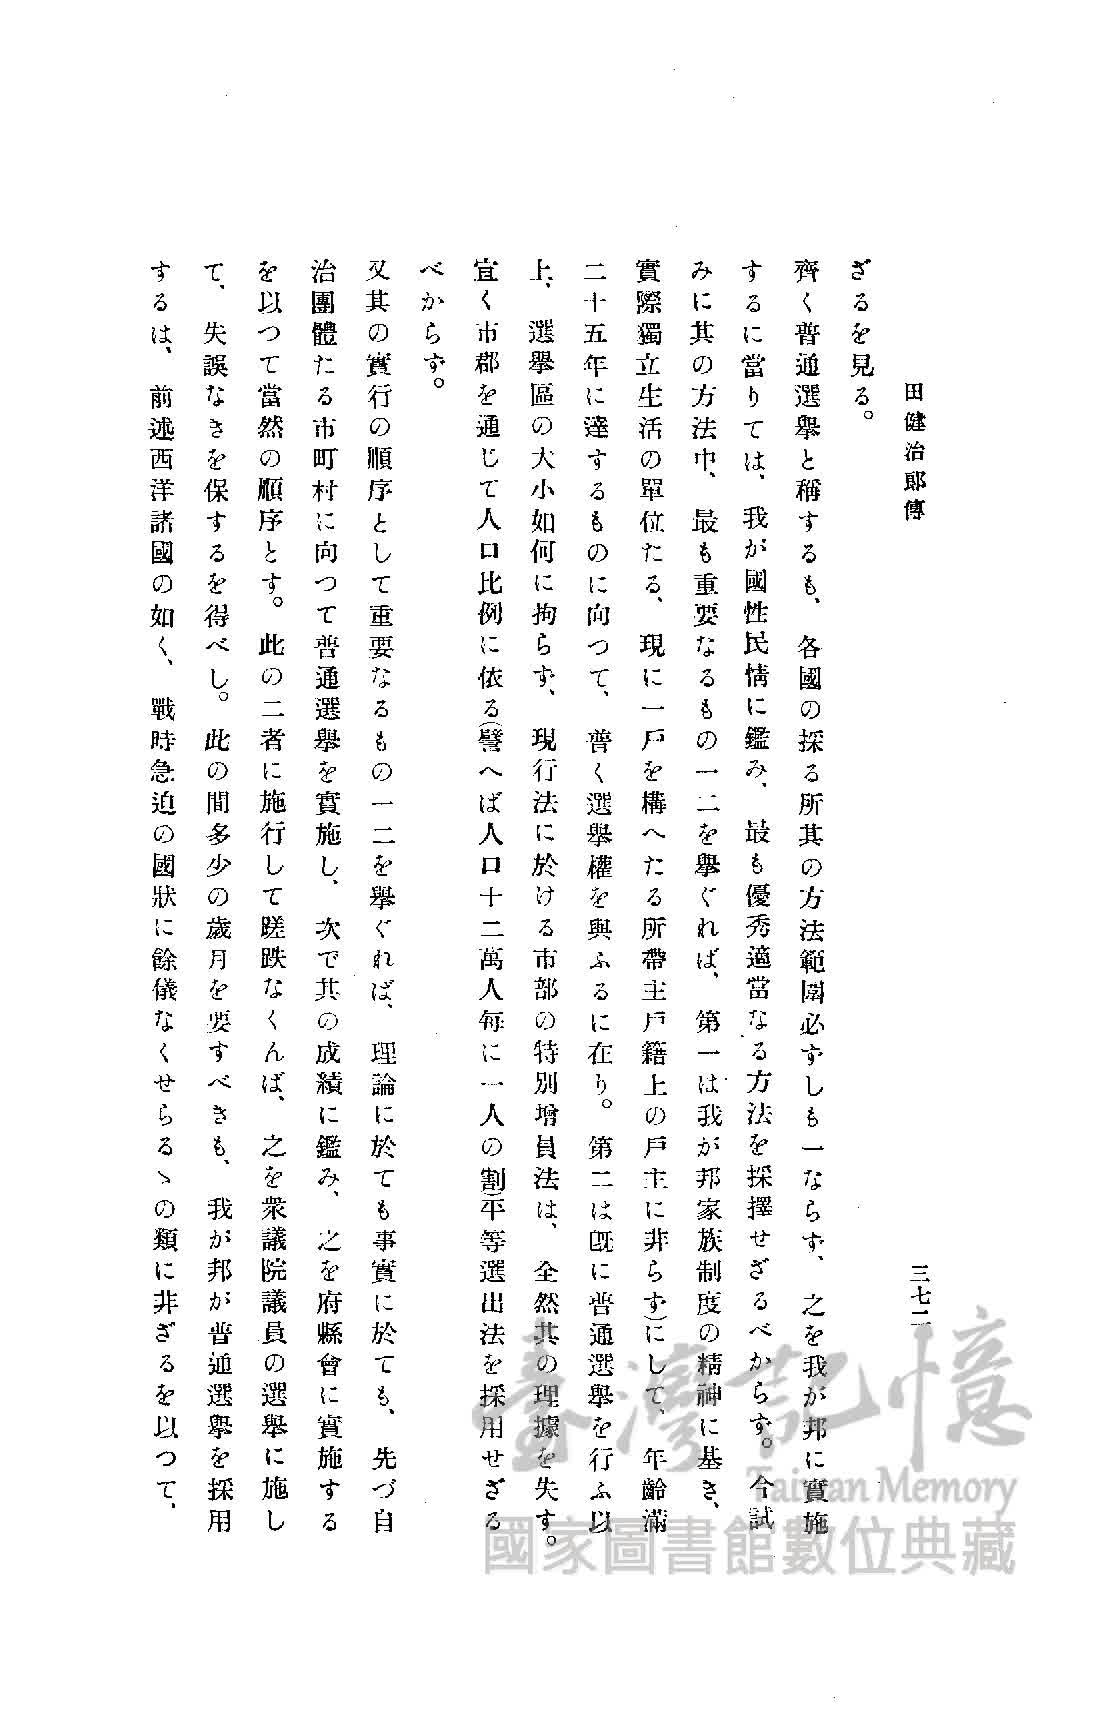 田健治郎傳
三七二
ざるを見る。
齊く普通選擧と稱するも、各國の採る所其の方法範圍必ずしも一ならず、之を我が邦に實施
するに當りては、我が國性民情に鑑み、最も優秀適當なる方法を採擇せざるべからず。今試
みに其の方法中、最も重要なるもの一二を擧ぐれば、第一は我が邦家族制度の精神に基き、
實際獨立生活の單位たる、現に一戶を構へたる所帶主戶籍上の戶主に非らず)にして、年齡滿
二十五年に達するものに向つて、普く選擧權を與ふるに在り。第二は既に普通選擧を行ふ以
上、選擧區の大小如何に拘らず、現行法に於ける市部の特別增員法は、全然其の理據を失す。
宜く市郡を通じて人口比例に依る(譬へば人口十二萬人每に一人の割)平等選出法を採用せざる
べからず。
又其の實行の順序として重要なるもの一二を擧ぐれば、理論に於ても事實に於ても、先づ自
治團體たる市町村に向つて普通選擧を實施し、次で其の成績に鑑み、之を府縣會に實施する
を以つて當然の順序とす。此の二者に施行して蹉跌なくんば、之を衆議院議員の選擧に施し
て、失誤なきを保するを得べし。此の間多少の歲月を要すべきも、我が邦が普通選擧を採用
するは、前述西洋諸國の如く、戰時急迫の國狀に餘儀なくせらるゝの類に非ざるを以つて、
臺灣記憶
Taiwan Memory
國家圖書館數位典藏